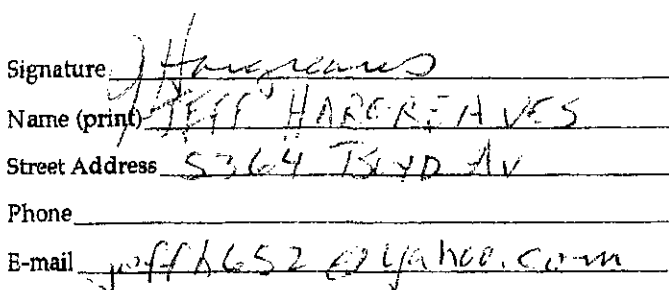 Signature J Hargreaves
Name (print) JEFF HARGREAVES
Street Address 5364 Boyd Av
Phone
E-mail jeffh652@yahoo.com